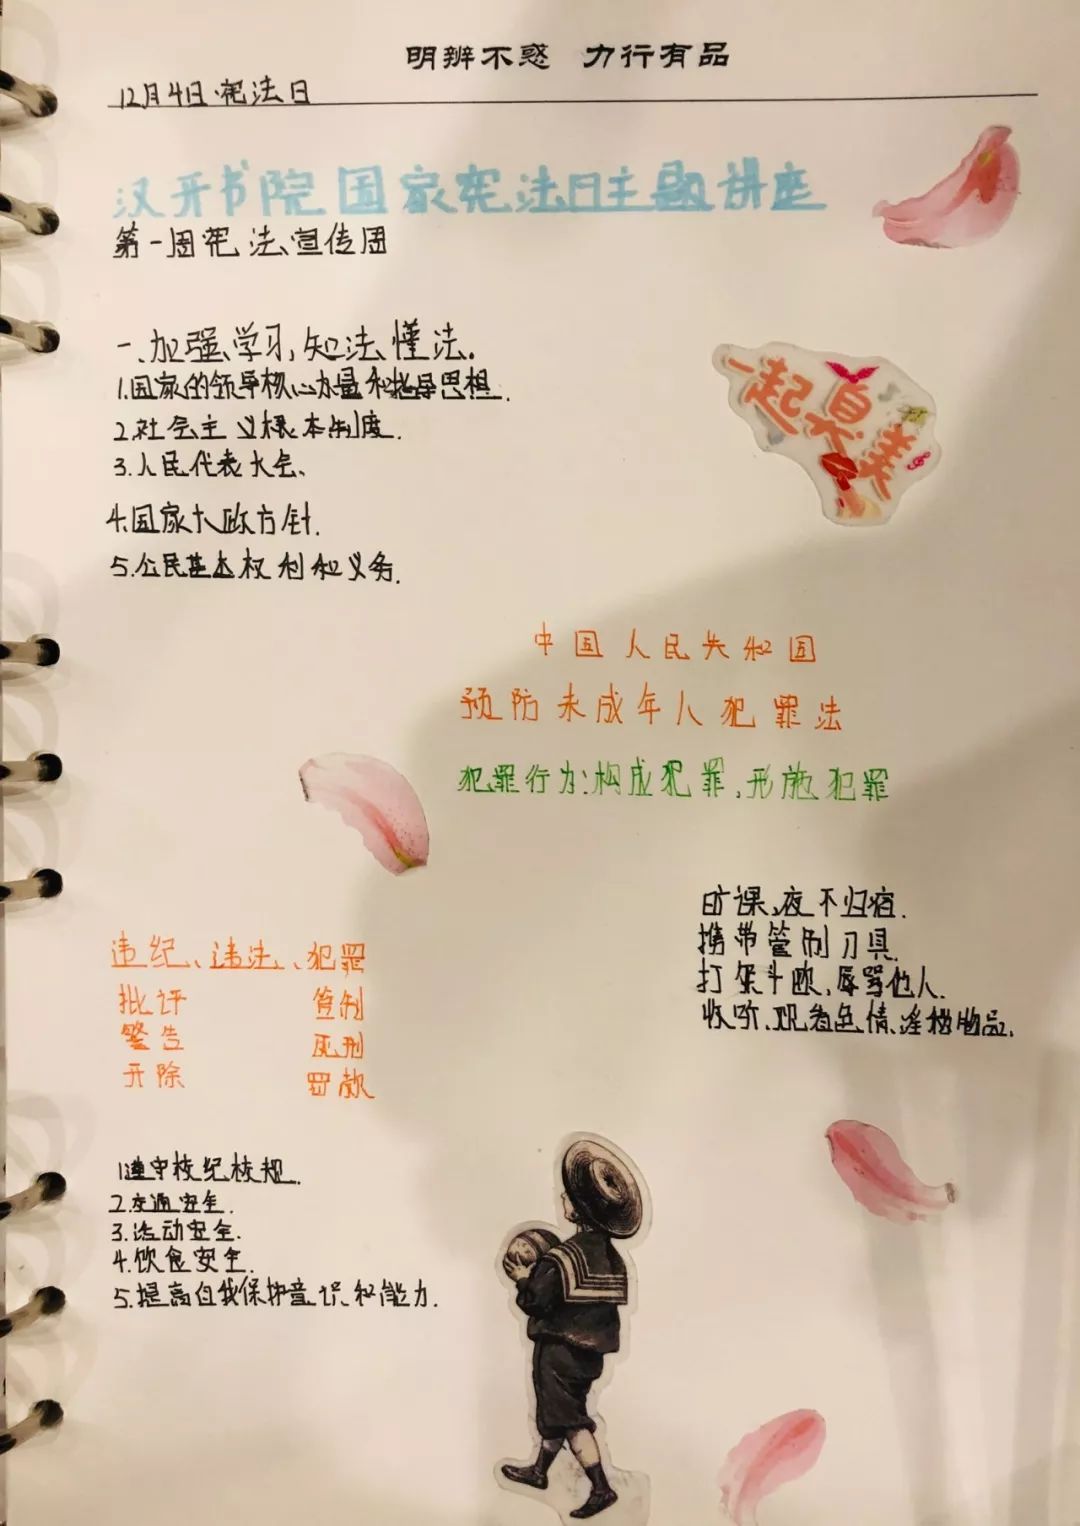 明辨不惑 力行有品
12月4日·宪法日
汉开书院国家宪法日主题讲座
第一周宪法宣传周
一、加强学习,知法懂法.
1.国家的领导核心力量和指导思想.
2.社会主义根本制度.
3.人民代表大会.
4.国家大政方针.
5.公民基本权利和义务.
一起臭美
中国人民共和国
预防未成年人犯罪法
犯罪行为:构成犯罪,形施犯罪
旷课,夜不归宿.
携带管制刀具.
打架斗殴,辱骂他人.
收听、观看色情、淫秽物品.
违纪、违法、犯罪
批评 管制
警告 死刑
开除 罚款
1.遵守校纪校规.
2.交通安全.
3.活动安全.
4.饮食安全.
5.提高自我保护意识和能力.